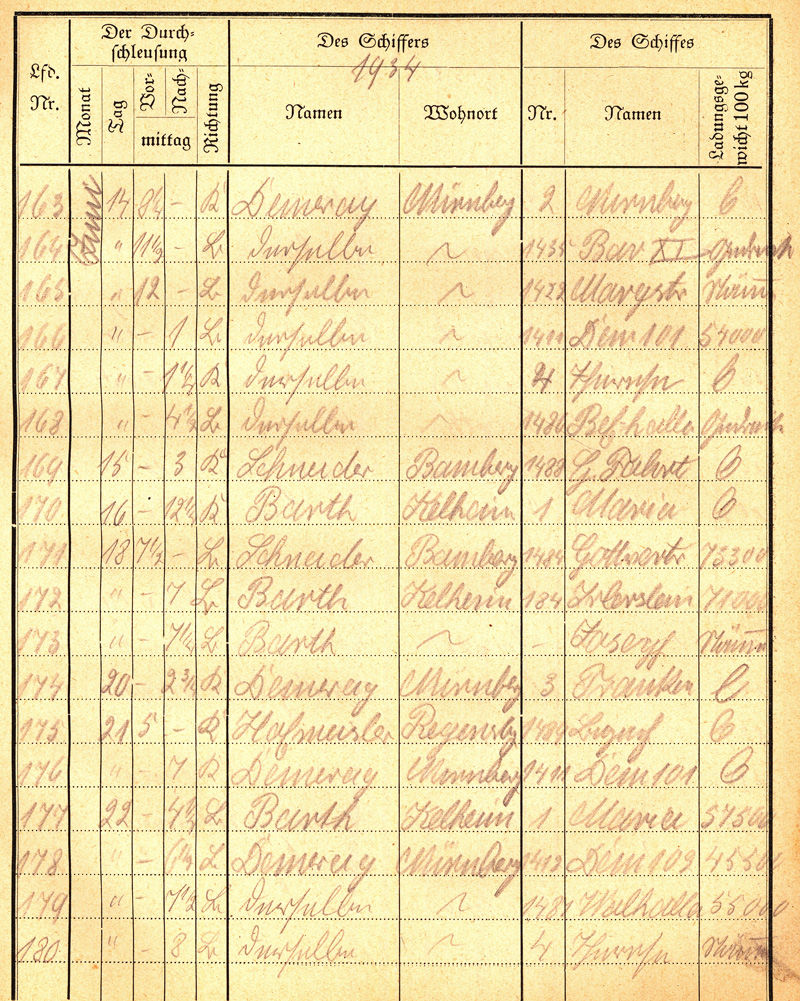 Lfd. Nr.
Der Durchschleusung
Des Schiffers
Des Schiffes
1934
Monat Tag Vor- Nach- mittag Richtung Namen Wohnort Nr. Namen Ladungsgewicht 100 kg
163 Juni 14 8½ – K Demeray Nürnberg 2 Nürnberg
164 " 11½ – L derselbe 1435 Bav XI
165 " 12 – L derselbe 1422
166 " – 1 L derselbe 1411 Dem 101 54000
167 " – 1½ K derselbe 4 Therese
168 " – 4½ L derselbe 1486
169 15 – 3 K Schneider Bamberg 1488
170 16 – 12½ K Barth Kelheim 1 Maria
171 18 7½ – L Schneider Bamberg 1484 73300
172 " – 7 L Barth Kelheim 184 71000
173 " – 7½ L Barth – Josef
174 20 – 2¾ K Demeray Nürnberg 3 Franken
175 21 5 – K Hofmeister Regensbg
176 " – 7 K Demeray Nürnberg 1411 Dem 101
177 22 – 4½ L Barth Kelheim 1 Maria 57500
178 " – L Demeray Nürnberg 1412 Dem 102 45500
179 " – 7½ L derselbe 1481 Walhalla 55000
180 " – 8 L derselbe 4 Therese